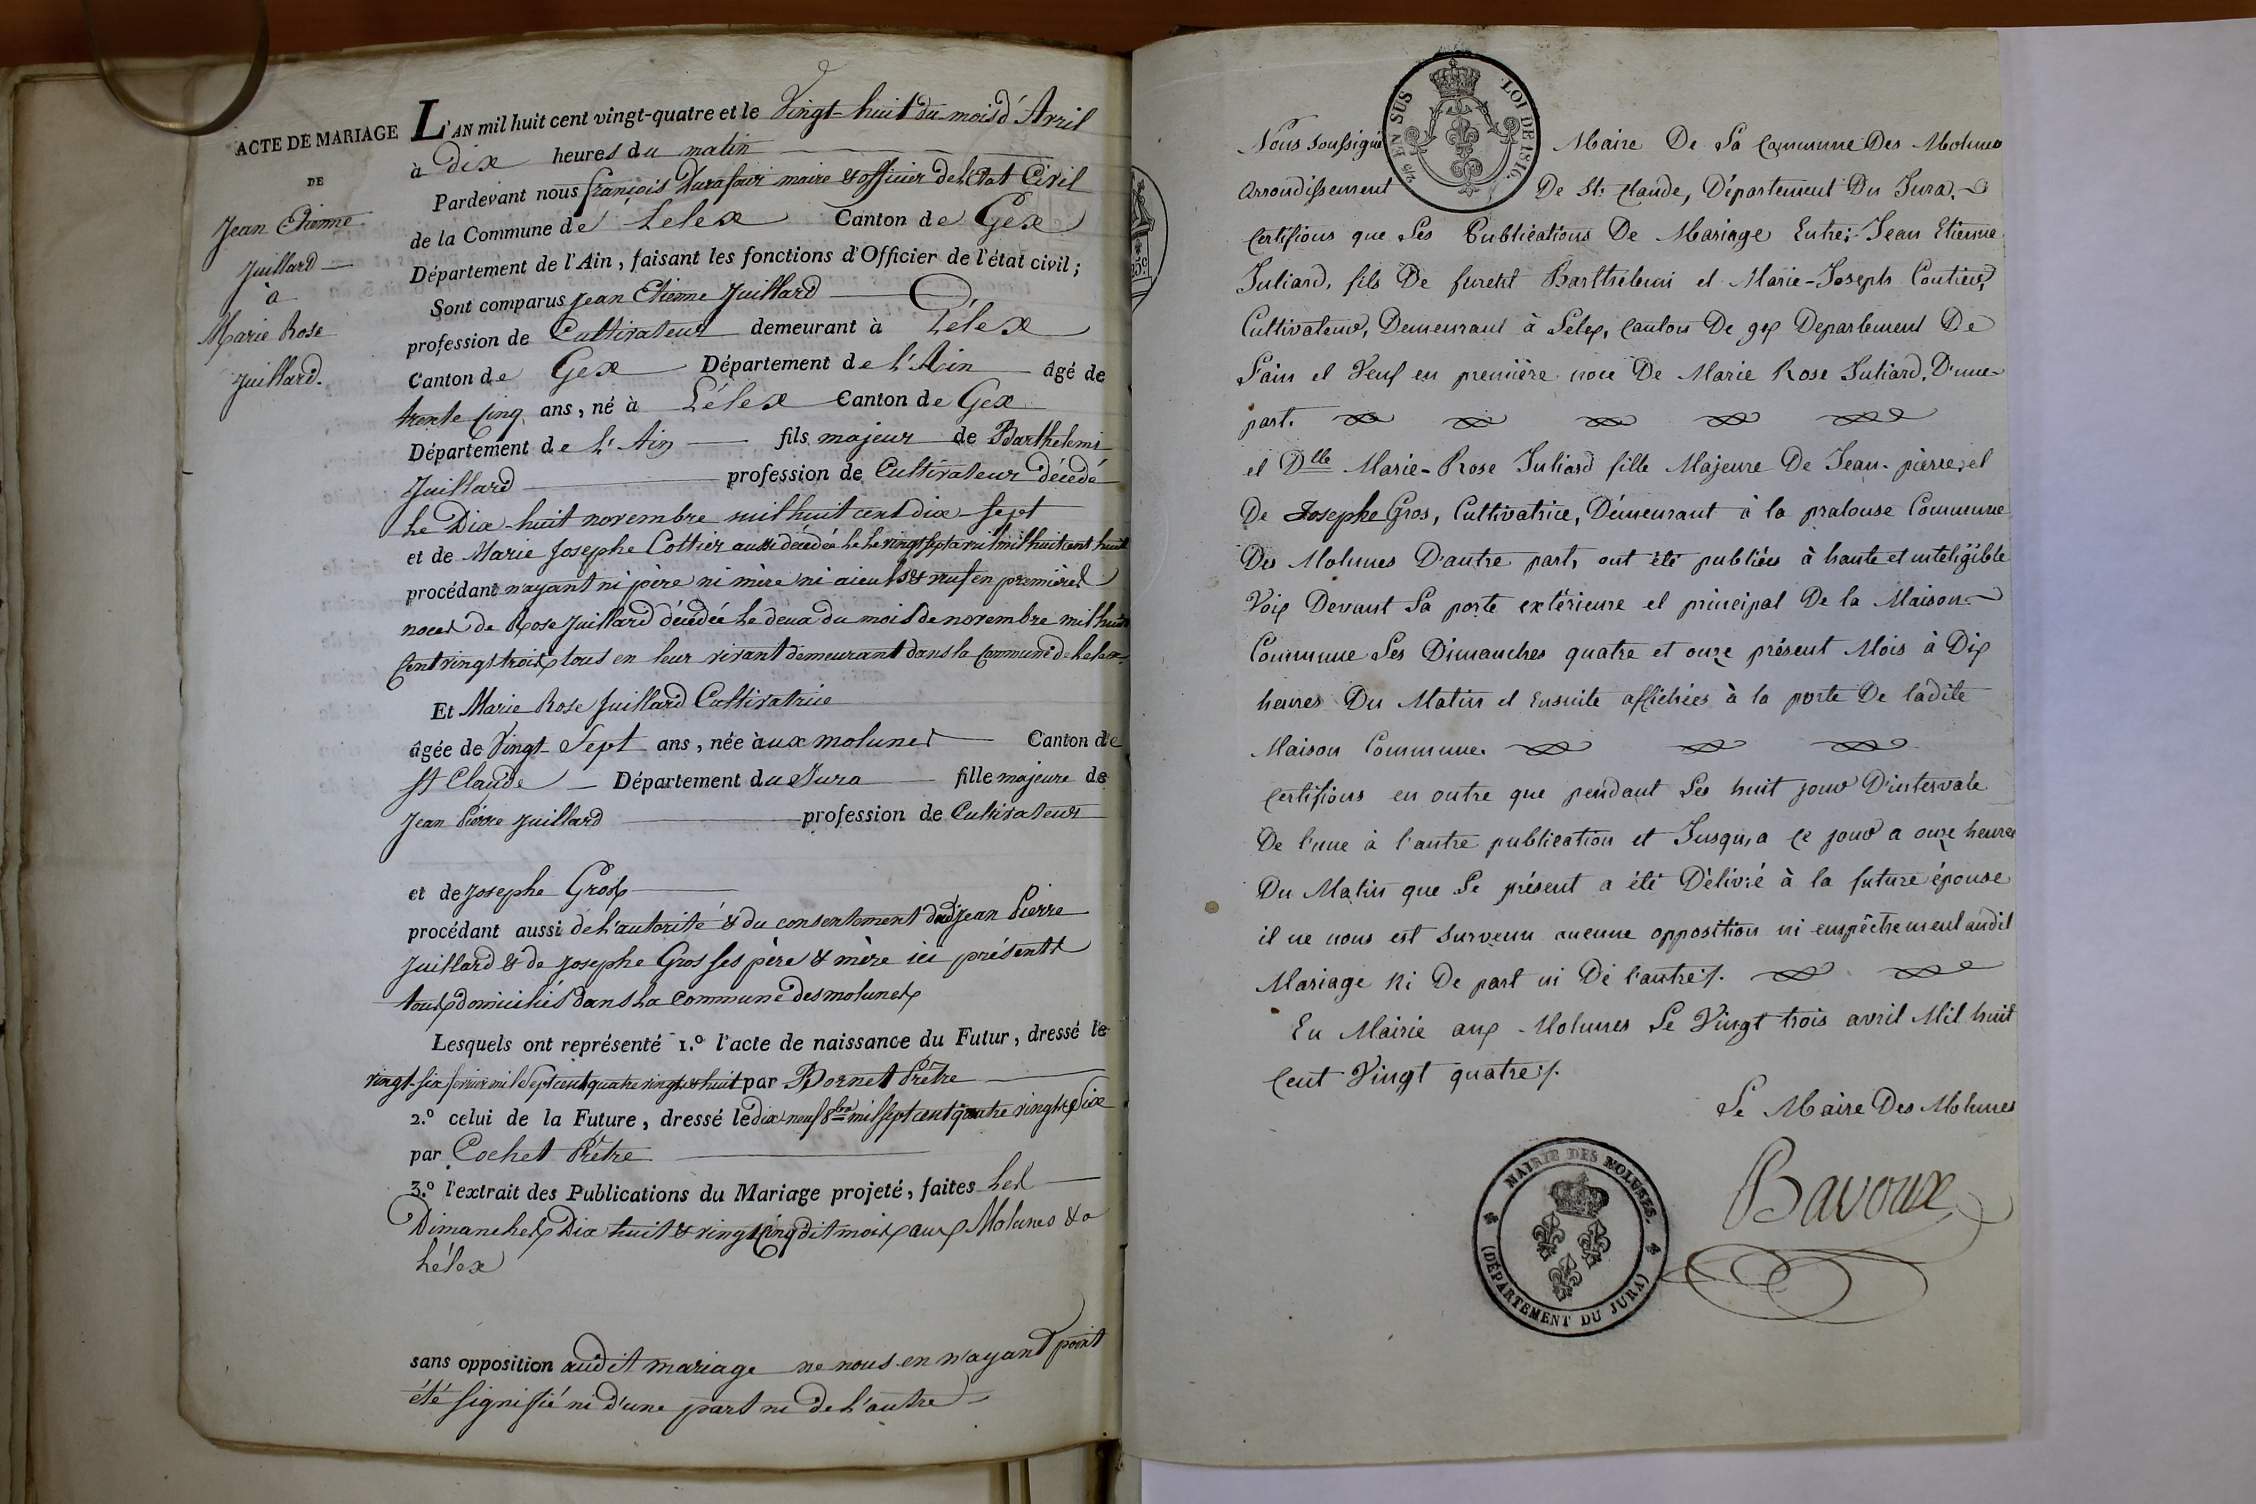 ACTE DE MARIAGE
DE
Jean Etienne
Juillard
à
Marie Rose
Juillard.
L'AN mil huit cent vingt-quatre et le Vingt-huit du mois d'Avril
à Dix heures du matin
Pardevant nous françois Durafour maire & officier de l'Etat Civil
de la Commune de Lelex Canton de Gex
Département de l'Ain, faisant les fonctions d'Officier de l'état civil;
Sont comparus Jean Etienne Juillard
profession de Cultivateur demeurant à Lélex
Canton de Gex Département de l'Ain âgé de
trente Cinq ans, né à Lélex Canton de Gex
Département de L'Ain fils majeur de Barthelemi
Juillard profession de Cultivateur décédé
Le Dix-huit novembre mil huit cent dix-sept
et de Marie Josephe Cottier aussi décédée Le Le vingt sept avril mil huit cent huit
procédant n'ayant ni père ni mère ni aieuls & veuf en premières
noces de Rose Juillard décédée Le deux du mois de novembre mil huit
Cent vingt trois tous en leur vivant demeurant dans la Commune de Lelex
Et Marie Rose Juillard Cultivatrice
âgée de Vingt-Sept ans, née à aux molunes Canton de
St Claude Département du Jura fille majeure de
Jean Pierre Juillard profession de Cultivateur
et de Josephe Gros
procédant aussi de L'autorité & du consentement dud. Jean Pierre
Juillard & de Josephe Gros ses père & mère ici présents
tous domiciliés dans La Commune des molunes
Lesquels ont représenté 1.º l'acte de naissance du Futur, dressé le
vingt-six fevrier mil Sept cent quatre vingt & huit par Bornet Prêtre
2.º celui de la Future, dressé le dix-neuf 8bre mil sept cent quatre vingt Seize
par Cochet Prêtre
3.º l'extrait des Publications du Mariage projeté, faites Les
Dimanches Dix huit & vingt Cinq dit mois aux Molunes & a
Lélex
sans opposition audit mariage ne nous en n'ayant point
été signifié ni d'une part ni de L'autre
EN SUS
LOI DE 1816.
Nous soussigné Maire De La Commune Des Molunes
arrondissement De St. Claude, Département Du Jura.
Certifions que Les Publications De Mariage Entre; Jean Etienne
Juliard, fils De furent Barthelemi et Marie-Joseph Coutier,
Cultivateur, Demeurant à Lelex, canton De gex Departement De
Lain et Veuf en première noce De Marie Rose Juliard, D'une
part.
et Dlle Marie-Rose Juliard fille Majeure De Jean-pierre, et
De Josephe Gros, Cultivatrice, Démeurant à la pralouse Commune
Des Molunes D'autre part, ont été publiées à haute et inteligible
Voix Devant La porte extérieure et principal De la Maison
Commune Les Dimanches quatre et onze présent Mois à Dix
heures Du Matin et Ensuite affichées à la porte De ladite
Maison Commune.
Certifions en outre que pendant Les huit jour D'intervale
De l'une à l'autre publication et Jusqu'a ce jour a onze heures
Du Matin que Le présent a été Délivré à la future épouse
il ne nous est survenu aucune opposition ni empêchement audit
Mariage Ni De part ni De l'autre./.
En Mairie aux Molunes Le Vingt trois avril Mil huit
Cent Vingt quatre./.
Le Maire Des Molunes
Bavoux
MAIRIE DES MOLUNES.
(DÉPARTEMENT DU JURA)